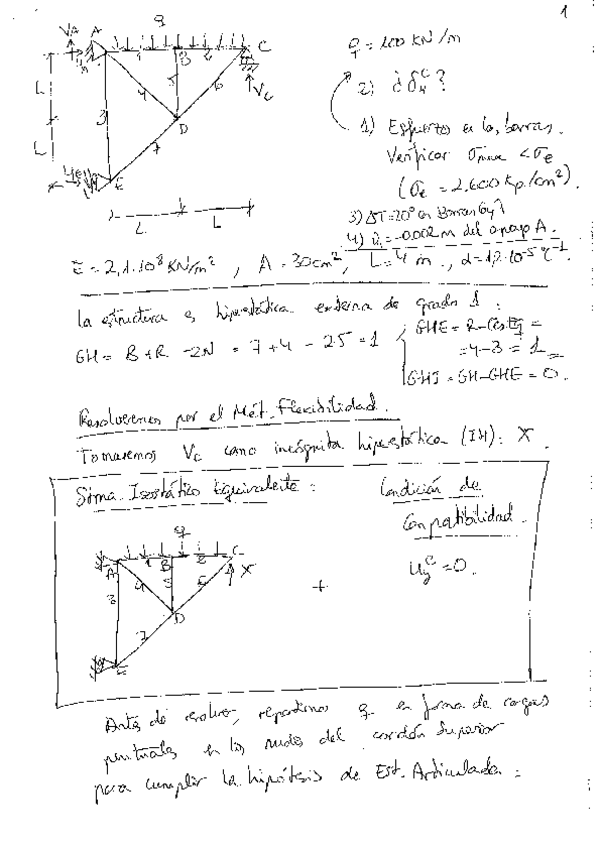 1
q
VA
A
B
C
HA
1
2
4
5
6
VC
3
D
7
L
L
HE
E
L
L
q = 100 KN/m
2) ¿δ C?
1) Esfuerzos en las barras.
Verificar σmax < σe
(σe = 2.600 Kp/cm²).
3) ΔT=20° en Barras 6 y 7
4) ū = -0.002 m del apoyo A.
E = 2,1·10⁸ KN/m², A = 30 cm², L = 4 m., α = 1,2·10⁻⁵ °C⁻¹.
La estructura es hiperestática externa de grado 1:
GH = B + R - 2N = 7 + 4 - 2·5 = 1
GHE = R - Ecs Eq =
= 4 - 3 = 1
GHI = GH - GHE = 0.
Resolveremos por el Mét. Flexibilidad.
Tomaremos VC como incógnita hiperestática (IH): X.
Stma. Isostático Equivalente:
Condición de
Compatibilidad.
q
A
1
B
2
C
3
4
5
6
X
+
uyC = 0.
D
7
E
Antes de resolver, repartimos q en forma de cargas
puntuales en los nudos del cordón superior
para cumplir la hipótesis de Est. Articuladas: